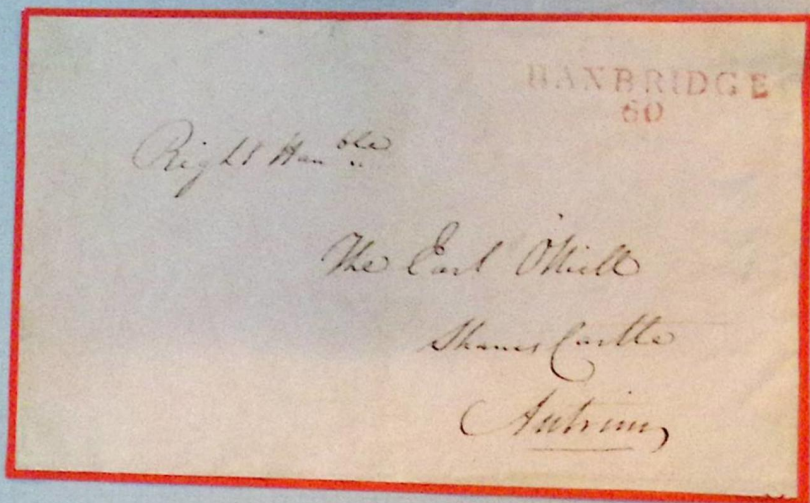 BANBRIDGE
60
Right Honble
The Earl O'Neill
Shanes Castle
Antrim